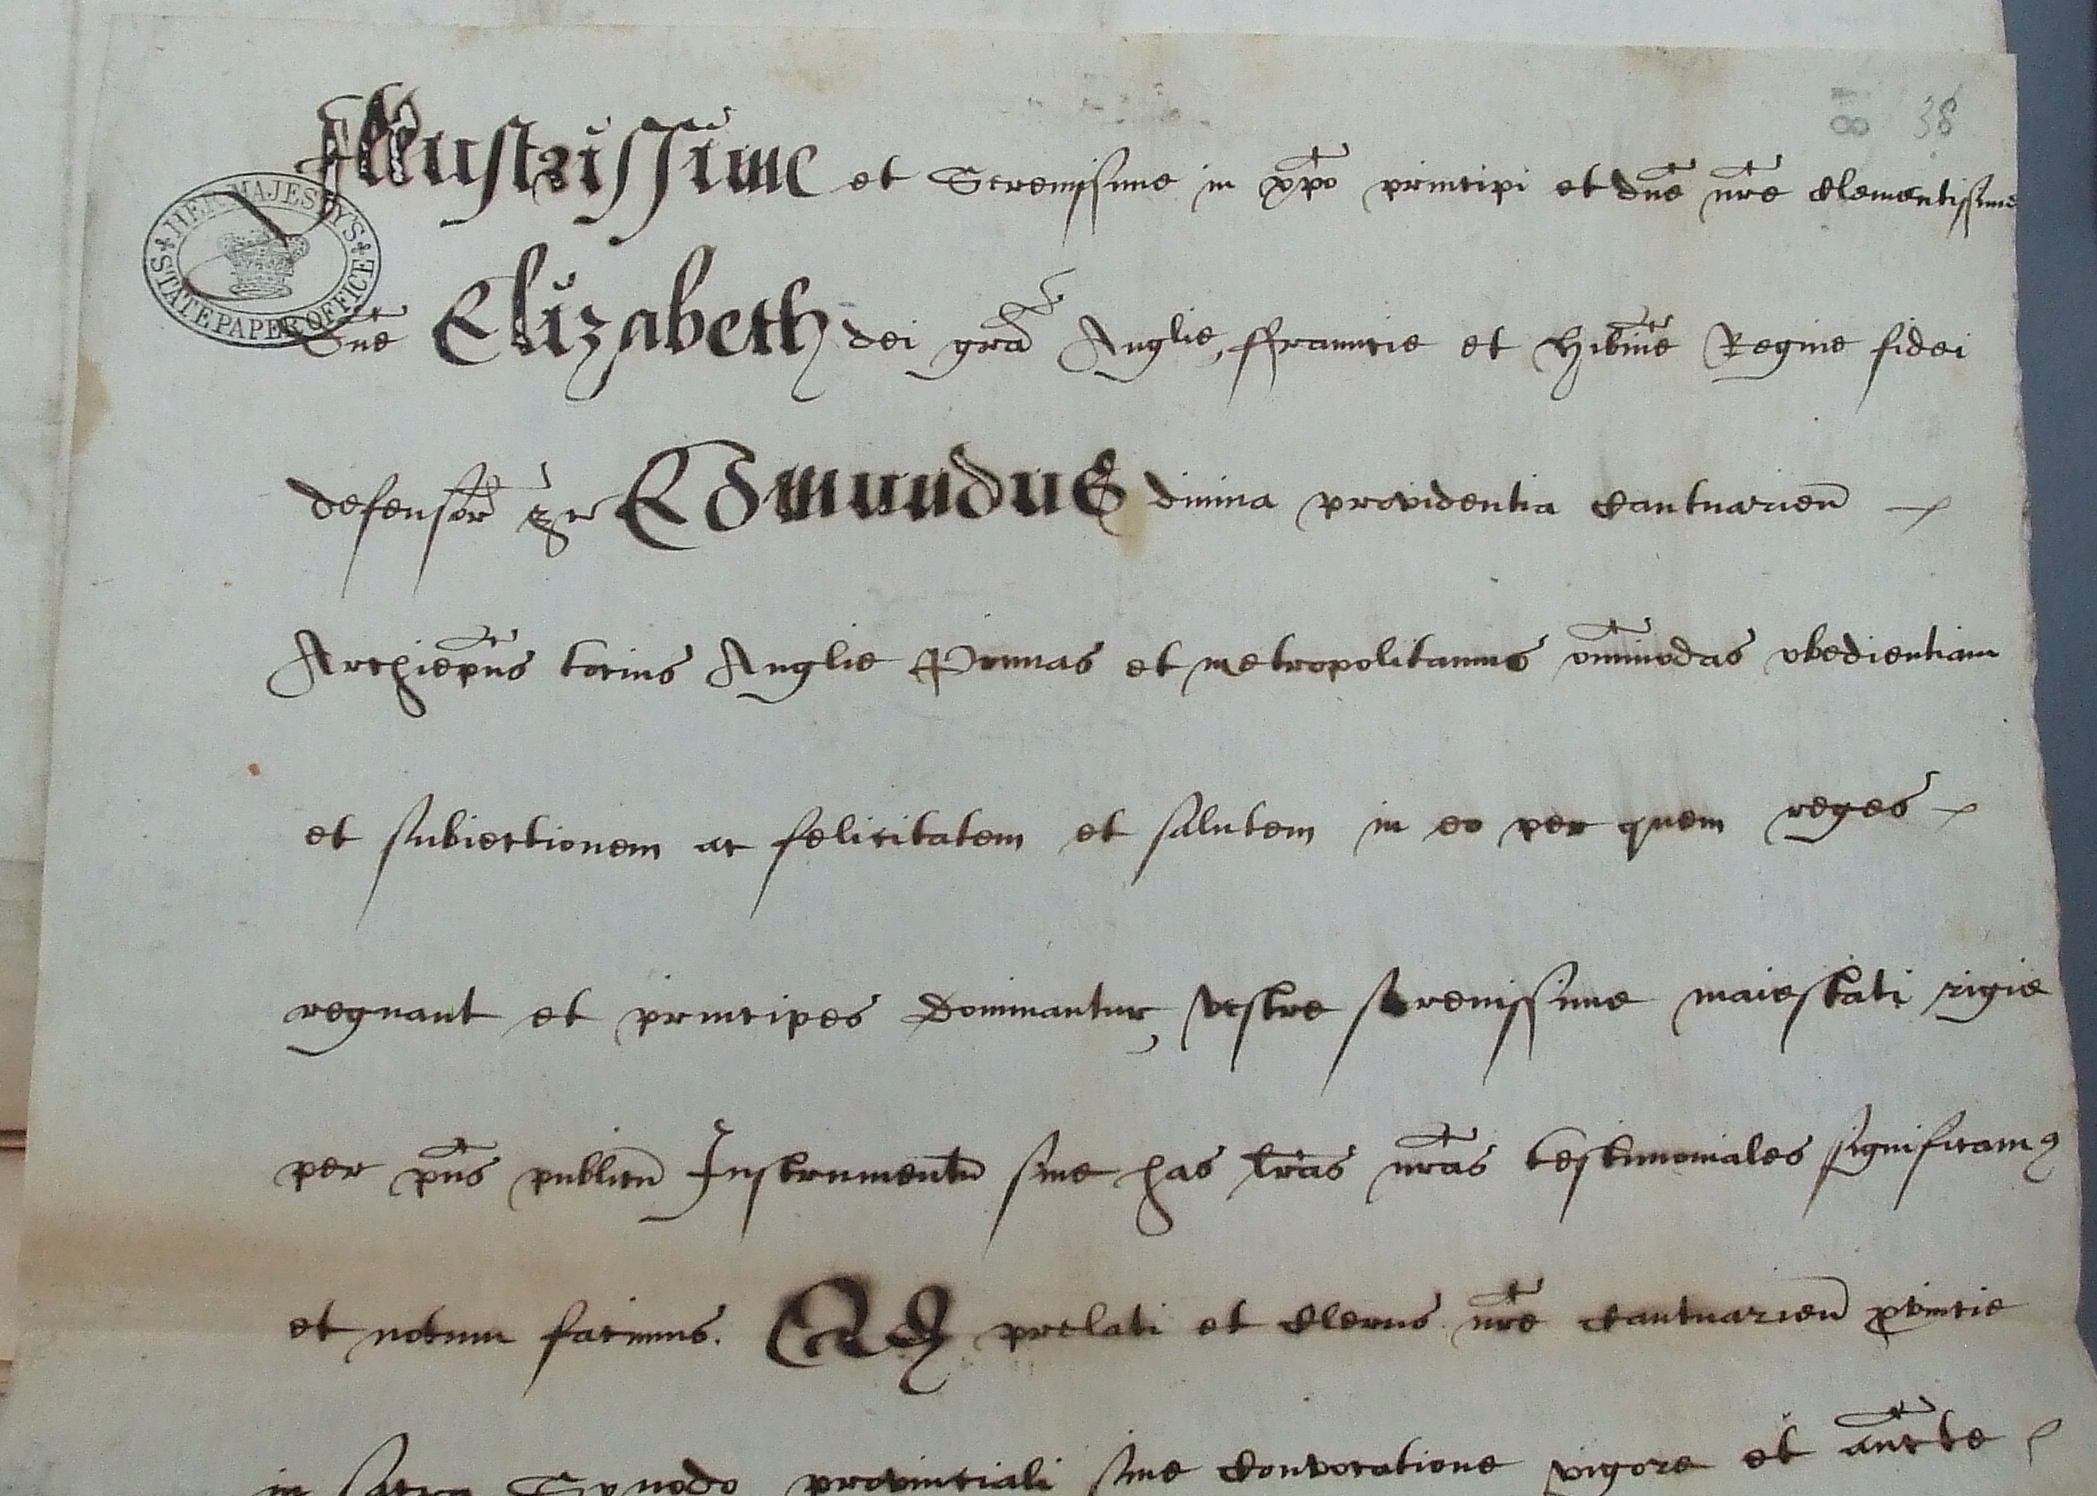 38
81
HER MAJESTY'S STATE PAPER OFFICE
Illustrissime et Serenissime in xp̄o principi et dn̄e nr̄e Clementissime
Dn̄e Elizabeth dei grā Anglie, ffrancie et Hib̄nie Regine fidei
defensor̄ &c Edmundus divina providentia Cantuarien̄
Archiep̄us totius Anglie Primas et metropolitanus om̄imodas obedientiam
et subiectionem ac felicitatem et salutem in eo per quem reges
regnant et principes dominantur, vestre serenissime maiestati rigie
per pn̄s publicū Instrumentū sive has lr̄as nr̄as testimoniales significamꝰ
et notum facimus. Qd prelati et Clerus nr̄e Cantuarien̄ ꝓvincie
in sacra Synodo provinciali sive Convocatione vigore et auc̄te